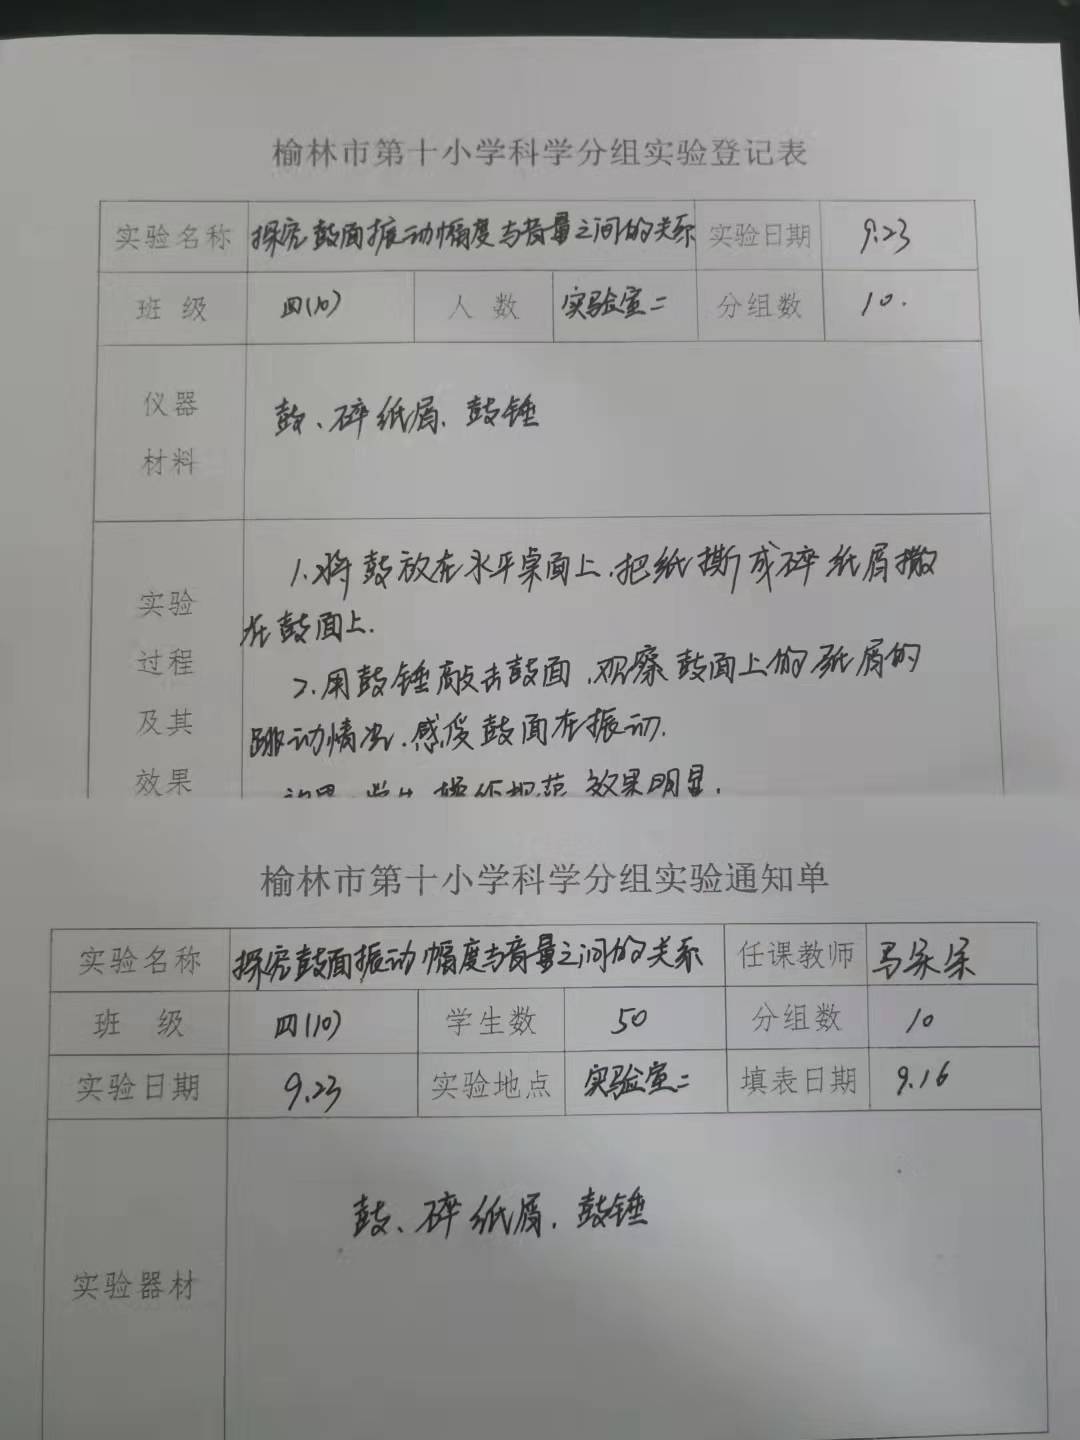 榆林市第十小学科学分组实验登记表
实验名称 探究鼓面振动幅度与音量之间的关系 实验日期 9.23
班 级 四(10) 人 数 实验室二 分组数 10.
仪器
材料
鼓、碎纸屑、鼓锤
实验
过程
及其
效果
1.将鼓放在水平桌面上.把纸撕成碎纸屑撒
在鼓面上.
2.用鼓锤敲击鼓面,观察鼓面上的纸屑的
跳动情况.感受鼓面在振动.
效果:学生操作规范,效果明显.
榆林市第十小学科学分组实验通知单
实验名称 探究鼓面振动幅度与音量之间的关系 任课教师 马
班 级 四(10) 学生数 50 分组数 10
实验日期 9.23 实验地点 实验室二 填表日期 9.16
实验器材 鼓、碎纸屑.鼓锤